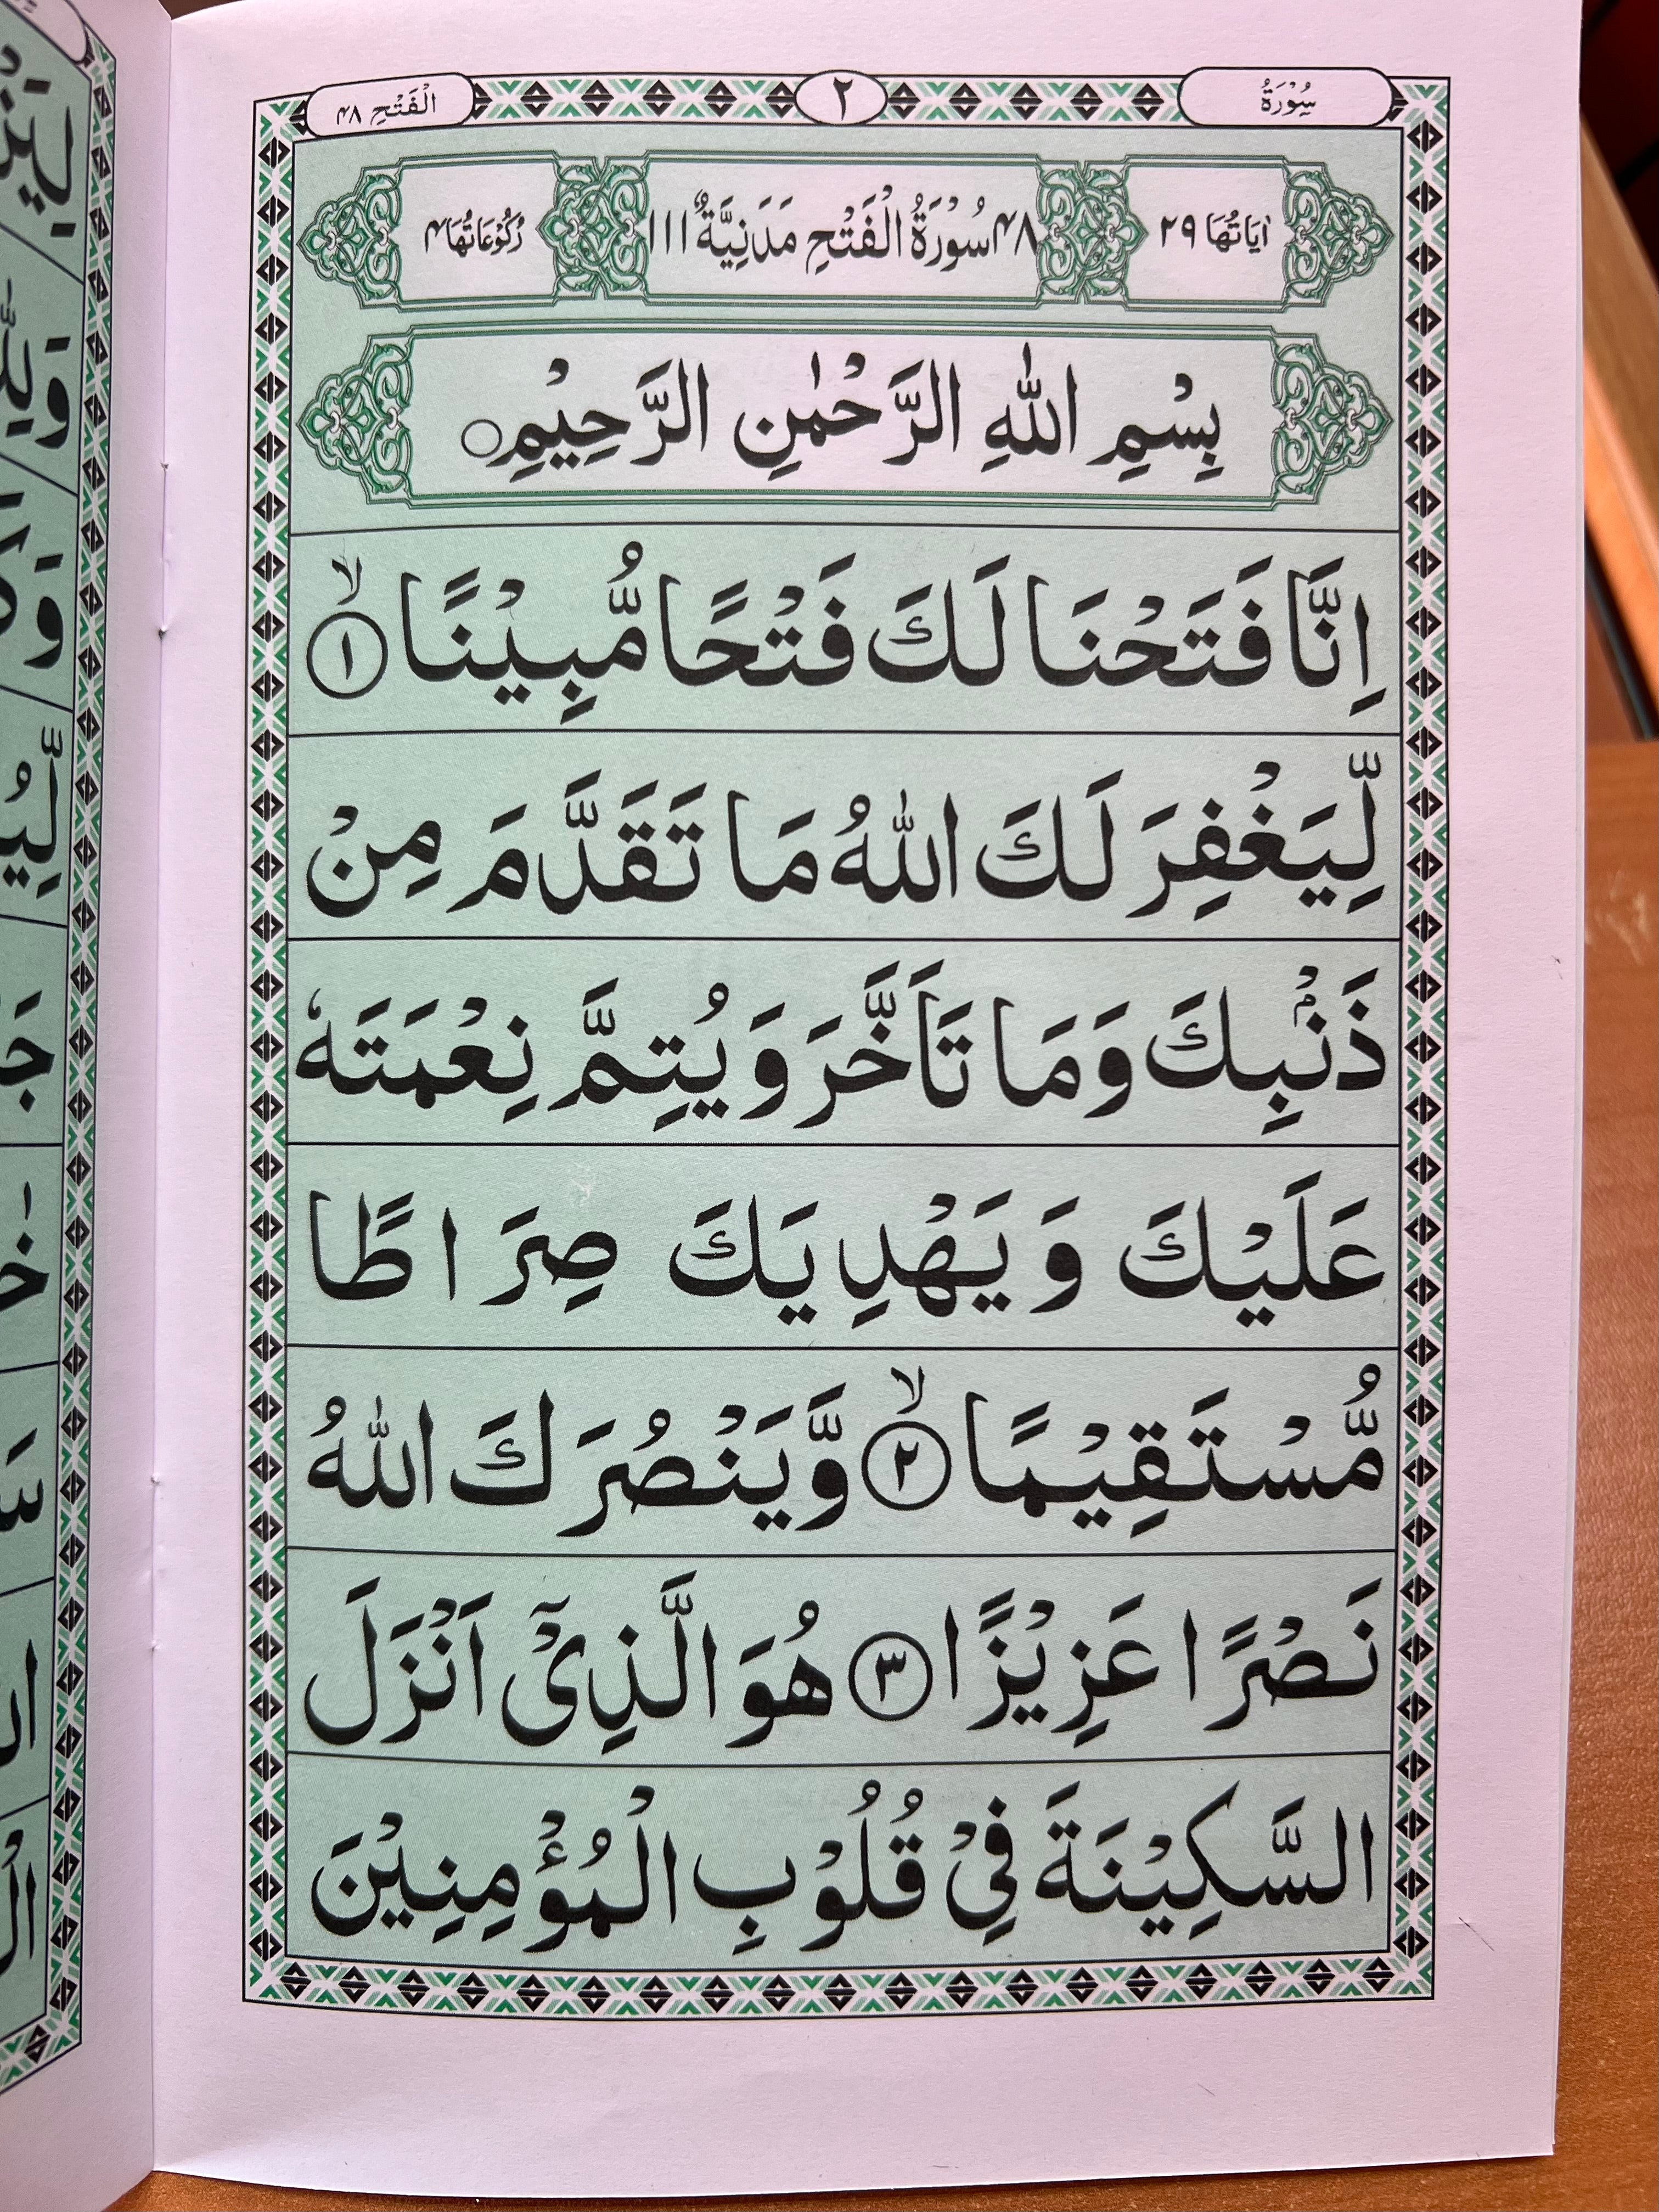 سُوْرَةُ ٢ الْفَتْحِ ۴٨
اٰيَاتُهَا ٢٩ ۴٨ سُوْرَةُ الْفَتْحِ مَدَنِيَّةٌ ١١١ رُكُوْعَاتُهَا ۴
بِسْمِ اللّٰهِ الرَّحْمٰنِ الرَّحِيْمِ ○
اِنَّا فَتَحْنَا لَكَ فَتْحًا مُّبِيْنًا ۙ ١
لِّيَغْفِرَ لَكَ اللّٰهُ مَا تَقَدَّمَ مِنْ
ذَنْۢبِكَ وَمَا تَاَخَّرَ وَيُتِمَّ نِعْمَتَهٗ
عَلَيْكَ وَيَهْدِيَكَ صِرَاطًا
مُّسْتَقِيْمًا ۙ ٢ وَّيَنْصُرَكَ اللّٰهُ
نَصْرًا عَزِيْزًا ٣ هُوَ الَّذِىْۤ اَنْزَلَ
السَّكِيْنَةَ فِىْ قُلُوْبِ الْمُؤْمِنِيْنَ